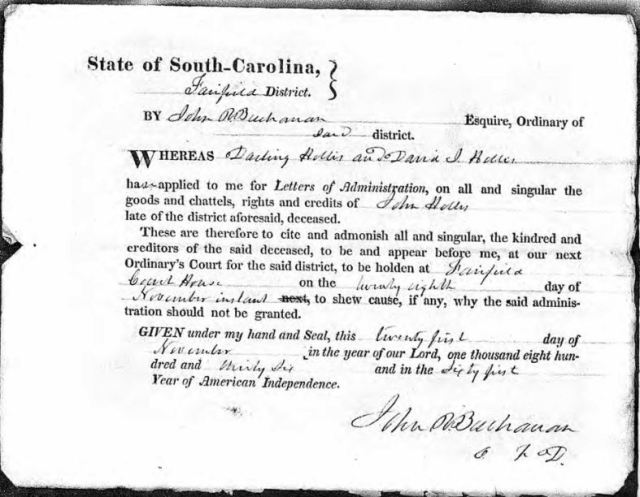 State of South-Carolina,
Fairfield District.
BY John R Buchanan Esquire, Ordinary of
said district.
WHEREAS Darling Hollis and David J. Hollis
has applied to me for Letters of Administration, on all and singular the
goods and chattels, rights and credits of John Hollis
late of the district aforesaid, deceased.
These are therefore to cite and admonish all and singular, the kindred and
creditors of the said deceased, to be and appear before me, at our next
Ordinary's Court for the said district, to be holden at Fairfield
Court House on the twenty eighth day of
November instant next, to shew cause, if any, why the said adminis-
tration should not be granted.
GIVEN under my hand and Seal, this twenty first day of
November in the year of our Lord, one thousand eight hun-
dred and thirty six and in the sixty first
Year of American Independence.
John R Buchanan
O. F. D.